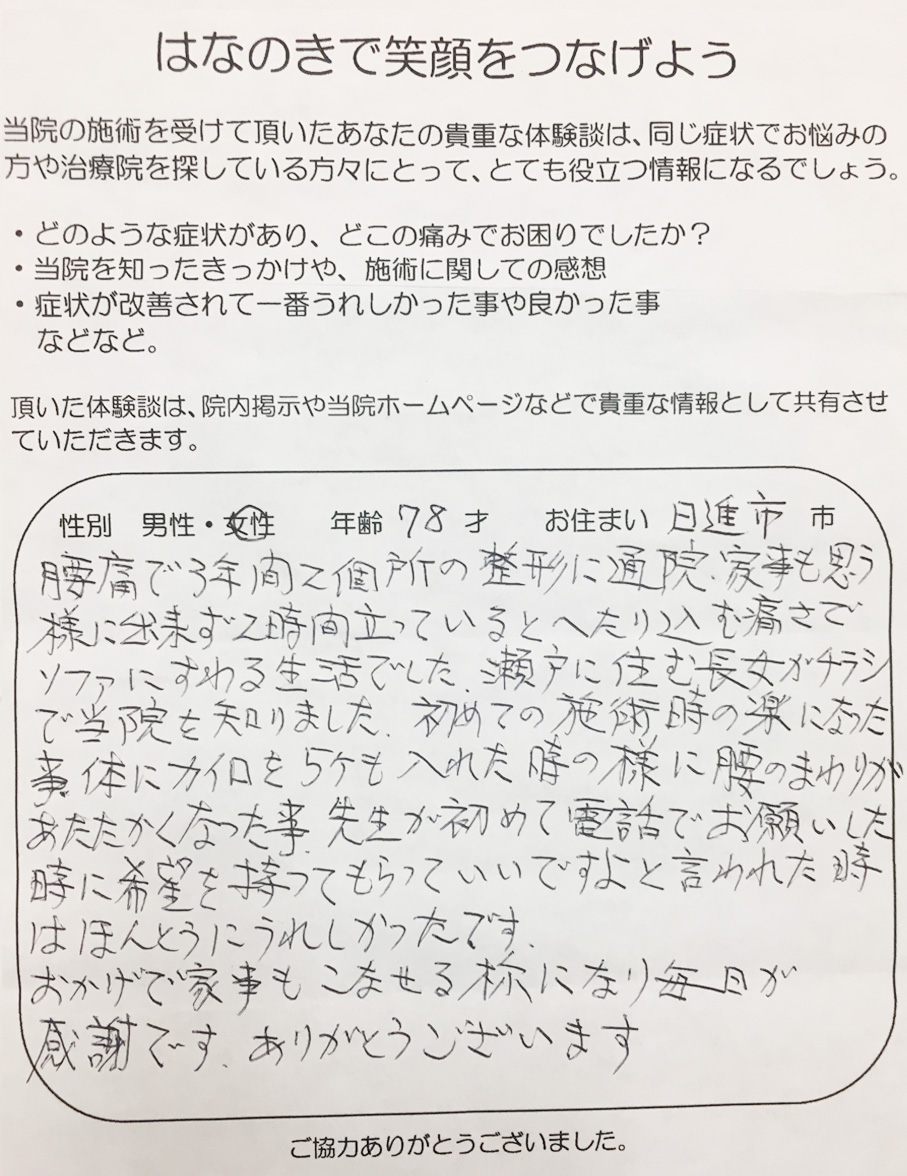 はなのきで笑顔をつなげよう
当院の施術を受けて頂いたあなたの貴重な体験談は、同じ症状でお悩みの
方や治療院を探している方々にとって、とても役立つ情報になるでしょう。
・どのような症状があり、どこの痛みでお困りでしたか？
・当院を知ったきっかけや、施術に関しての感想
・症状が改善されて一番うれしかった事や良かった事
などなど。
頂いた体験談は、院内掲示や当院ホームページなどで貴重な情報として共有させ
ていただきます。
性別 男性・女性 年齢 78 才 お住まい 日進市 市
腰痛で3年間2個所の整形に通院、家事も思う
様に出来ず2時間立っているとへたり込む痛さで
ソファにすわる生活でした、瀬戸に住む長女がチラシ
で当院を知りました、初めての施術時の楽になった
事、体にカイロを5ケも入れた時の様に腰のまわりが
あたたかくなった事、先生が初めて電話でお願いした
時に希望を持ってもらっていいですよと言われた時
はほんとうにうれしかったです、
おかげで家事もこなせる様になり毎日が
感謝です、ありがとうございます
ご協力ありがとうございました。